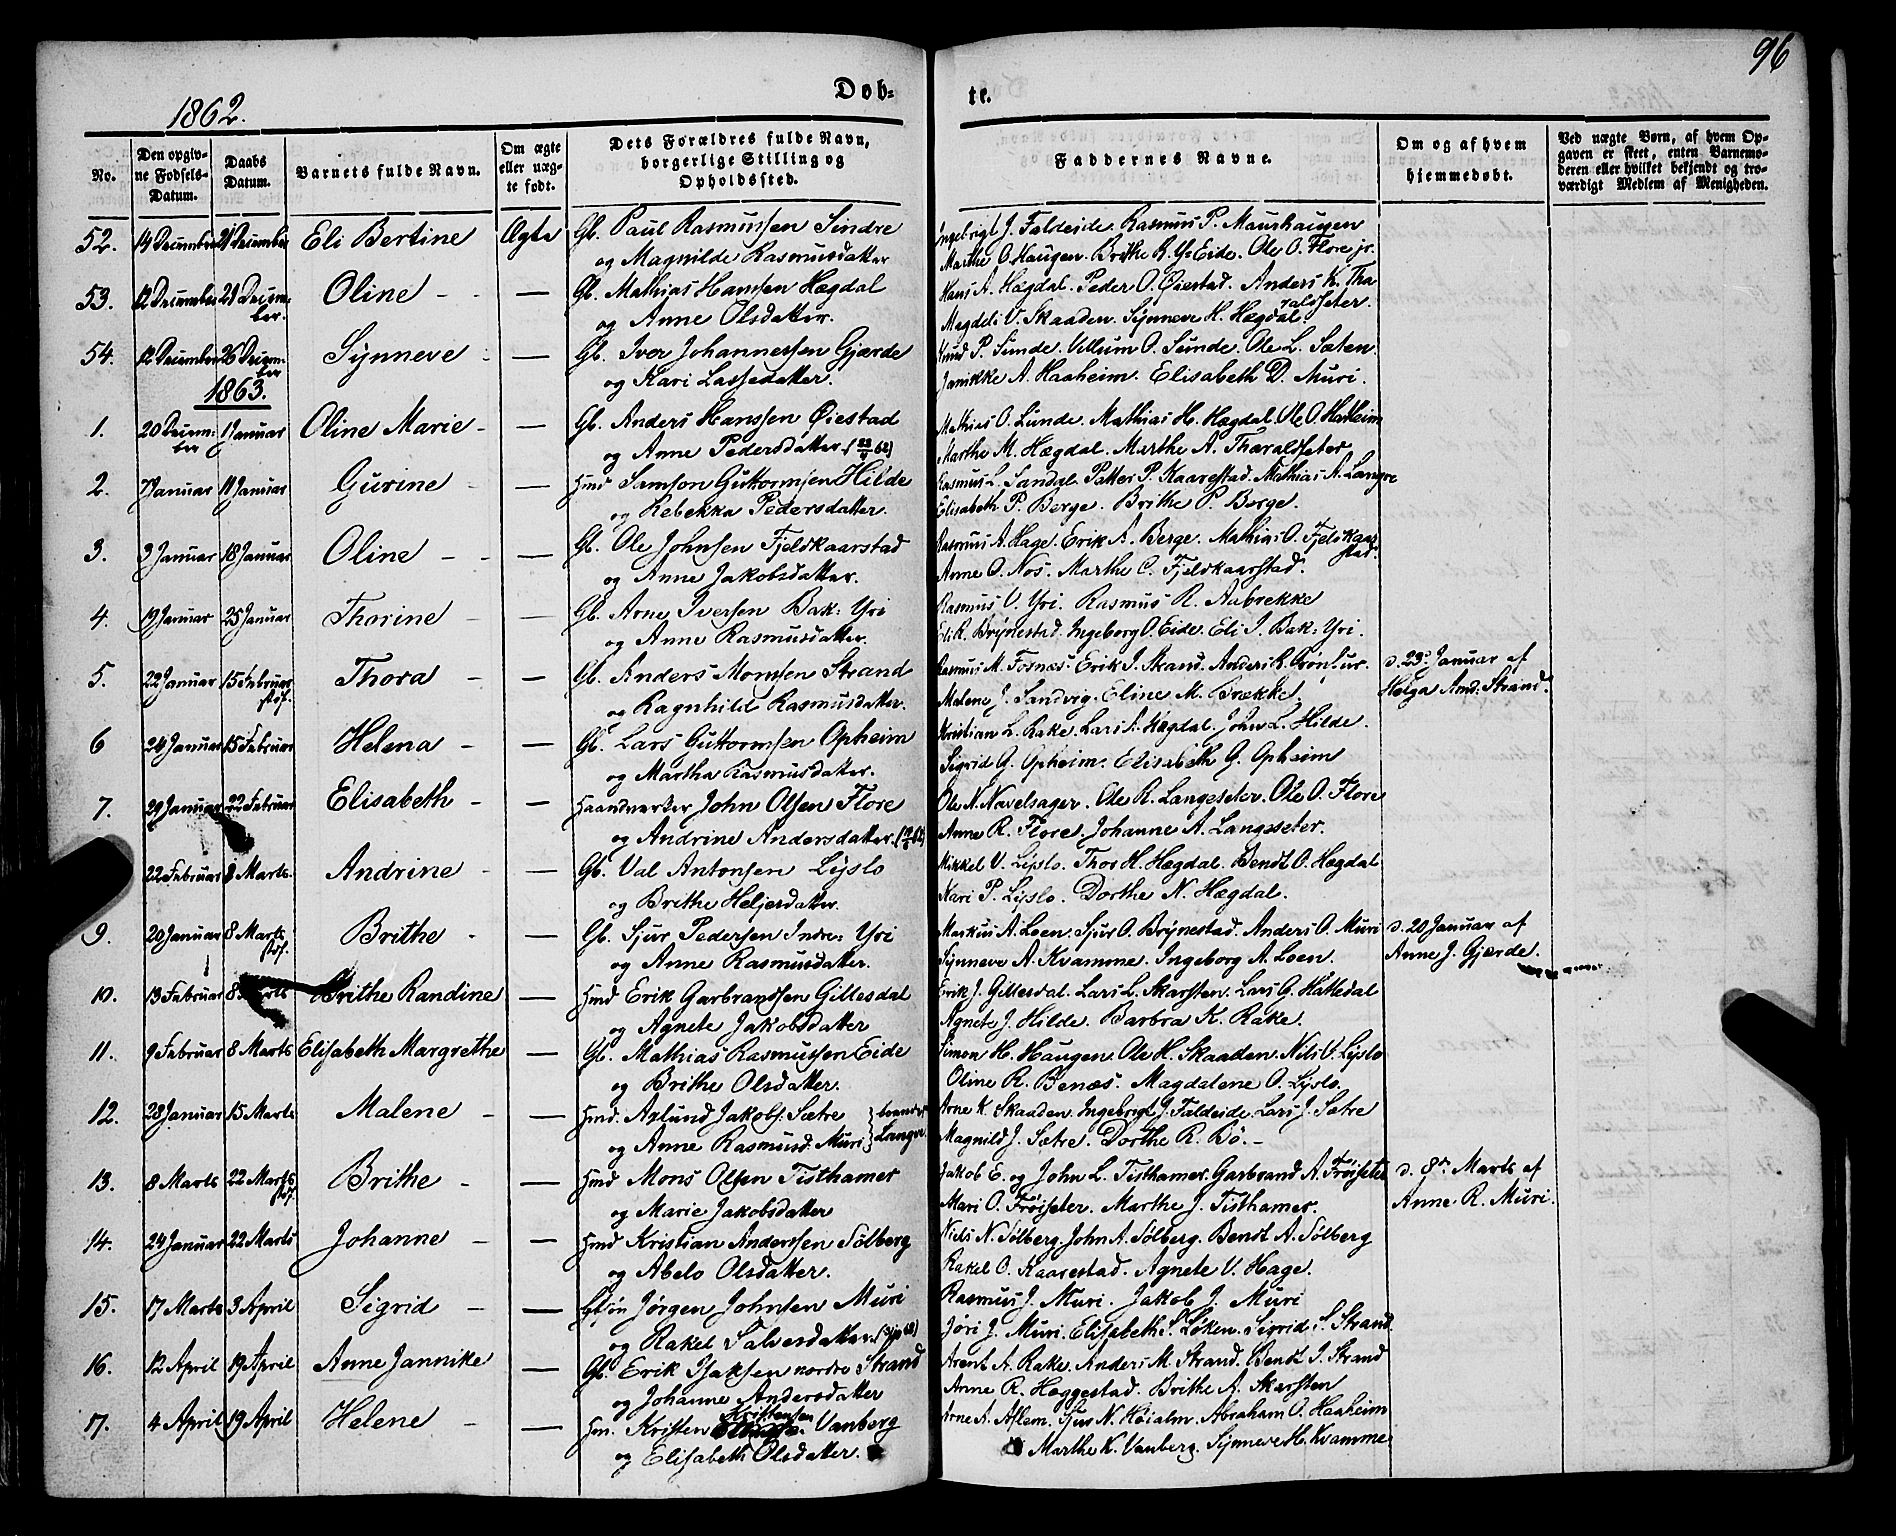 96
1862.
Døb-
te.
No.
Den opgiv-
ne Fødsels-
Datum.
Daabs
Datum.
Barnets fulde Navn.
Om ægte
eller uæg-
te født.
Dets Forældres fulde Navn,
borgerlige Stilling og
Opholdssted.
Faddernes Navne.
Om og af hvem
hjemmedøbt.
Ved uægte Børn, af hvem Op-
gaven er skeet, enten Barnemo-
deren eller hvilket bekjendt og tro-
værdigt Medlem af Menigheden.
52. 14 December 21 December Eli Bertine Ægte Gb. Paul Rasmussen Sindre Ingebrigt J. Faleide. Rasmus P. Maurhaugen
og Magnilde Rasmusdatter Marthe O. Haugen. Brithe R. Y: Eide. Ole O. Flore jr.
53. 12 December 21 Decem- Oline - - — Gb. Mathias Hansen Hægdal Hans A. Hægdal. Peder O. Øiestad. Anders K. Tha
ber. og Anne Olsdatter. Magdeli V. Skaaden. Synneve H. Hægdal. raldseter.
54. 12 December 26 Decem- Synneve - — Gb. Iver Johannessen Gjærde Knud P. Sunde. Villum O. Sunde. Ole L. Sæten.
ber og Kari Lassedatter. Janikke A. Haaheim. Elisabeth D. Muri.
1863.
1. 20 Decem- 1 Januar Oline Marie - — Gb. Anders Hanssen Øiestad Mathias O. Lunde. Mathias H. Hægdal. Ole O. Haaheim
ber og Anne Pedersdatter. Marthe M. Hægdal. Marthe A. Tharaldseter.
2. 7 Januar 11 Januar Gurine - — Hmd Samson Guttormsen Hilde Rasmus L. Sandal. Petter P. Kaarestad. Mathias A. Langve
og Rebekka Pedersdatter. Elisabeth P. Berge. Brithe P. Berge.
3. 3 Januar 18 Januar Oline - - — Gb. Ole Johnsen Fjeldkaarstad Rasmus A. Hage. Erik A. Berge. Mathias O. Fjelkaar
stad.
og Anne Jakobsdatter. Anne O. Nos. Marthe C. Fjeldkaarstad.
4. 19 Januar 25 Januar Thorine - — Gb. Arne Iversen Bak: Yri Rasmus V. Yri. Rasmus R. Aabrekke
og Anne Rasmusdatter. Eli R. Brynestad. Ingeborg O. Eide. Eli I. Bak: Yri.
5. 22 Januar 15 Februar Thora - — Gb. Anders Momsen Strand Rasmus M. Fosnæs. Erik J. Strand. Anders R. d. 23de Januar af
stdf. og Ragnhild Rasmusdatter. Malene J. Sandvig. Eline M. Brække. Helga And. Strand.
6 24 Januar 15 Februar Helena - — Gb. Lars Guttormsen Opheim Kristian L. Rake. Lars A. Hægdal. John L. Hilde.
og Martha Rasmusdatter. Sigrid G. Opheim. Elisabeth G. Opheim
7. 29 Januar 22 Februar Elisabeth - — Haandverker John Olsen Flore Ole N. Navelsager. Ole R. Langeseter. Ole O. Flore
og Andrine Andersdatter. Anne R. Flore. Johanne A. Langeseter.
22 Februar 8 Marts. Andrine - — Gb. Val Antonsen Lyslo Mikkel V. Lyslo. Thor H. Hægdal. Bendt O. Hægdal
og Brithe Heljesdatter. Kari P. Lyslo. Dorthe N. Hægdal.
9. 20 Januar 8 Marts Brithe - — Gb. Sjur Pedersen Indre: Yri Markus A. Loen. Sjur O. Brynestad. Anders O. Muri d. 20 Januar af
stdf. og Anne Rasmusdatter. Synneve A. Kvamme. Ingeborg A. Loen. Anne J. Gjærde.
10. 13 Februar 8 Marts Brithe Randine — Hmd Erik Garbrandsen Gillesdal Erik J. Gillesdal. Lars L. Skarsten. Lars G. Hattedal
og Agnete Jakobsdatter Agnete J. Hilde. Barbra K. Rake.
11. 9 Februar 8 Marts Elisabeth Margrethe — Gb. Mathias Rasmussen Eide Simon H. Haugen. Ole H. Skaaden. Nils V. Lyslo
og Brithe Olsdatter. Oline R. Benæs. Magdalene O. Lyslo.
12. 28 Januar 15 Marts Malene - — Hmd. Aslund Jakobs. Sætre Arne K. Skaaden. Ingebrigt J. Faleide. Lars J. Sætre
og Anne Rasmusd. Muri Magnild J. Sætre. Dorthe R. Bö. -
13. 8 Marts 22 Marts Brithe - — Hmd Mons Olsen Tisthamer Jakob E. og John L. Tisthamer. Garbrand A. Frøiseter d. 8de Marts af
stdf. og Marie Jakobsdatter Mari O. Frøiseter. Marthe J. Tisthamer. Anne R. Muri.
14. 24 Januar 22 Marts Johanne - — Hmd Kristian Anderssen Sølberg Niels N. Sølberg. John A. Sølberg. Bendt A. Sølberg
og Abelo Olsdatter. Rakel O. Kaarestad. Agnete V. Hage.
15. 17 Marts 3 April Sigrid - — Gbsøn Jørgen Johnsen Muri Rasmus J. Muri. Jakob J. Muri
og Rakel Salvesdatter. Jøri J. Muri. Elisabeth S. Løken. Sigrid S. Strand.
16. 12 April 19 April Anne Jannike — Gb. Erik Isaksen nordre Strand Arent A. Rake. Anders M. Strand. Bendt I. Strand
og Johanne Andersdatter Anne R. Heggestad. Brithe A. Skarsten
17. 4 April 19 April Helene - — Hm. Kristen Kristensen Vanberg Arne A. Aflem. Sjur N. Høialm. Abraham O. Haaheim
og Elisabeth Olsdatter. Marthe K. Vanberg. Synneve H. Kvamme